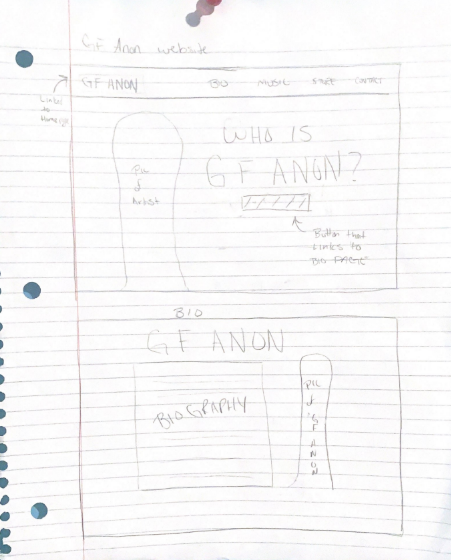 GF Anon website
GF ANON BIO MUSIC STORE CONTACT
Links
to
Homepage
WHO IS
GF ANON?
Pic
of
Artist
Button that
Links to
BIO PAGE
BIO
GF ANON
BIOGRAPHY
Pic
of
GF
ANON